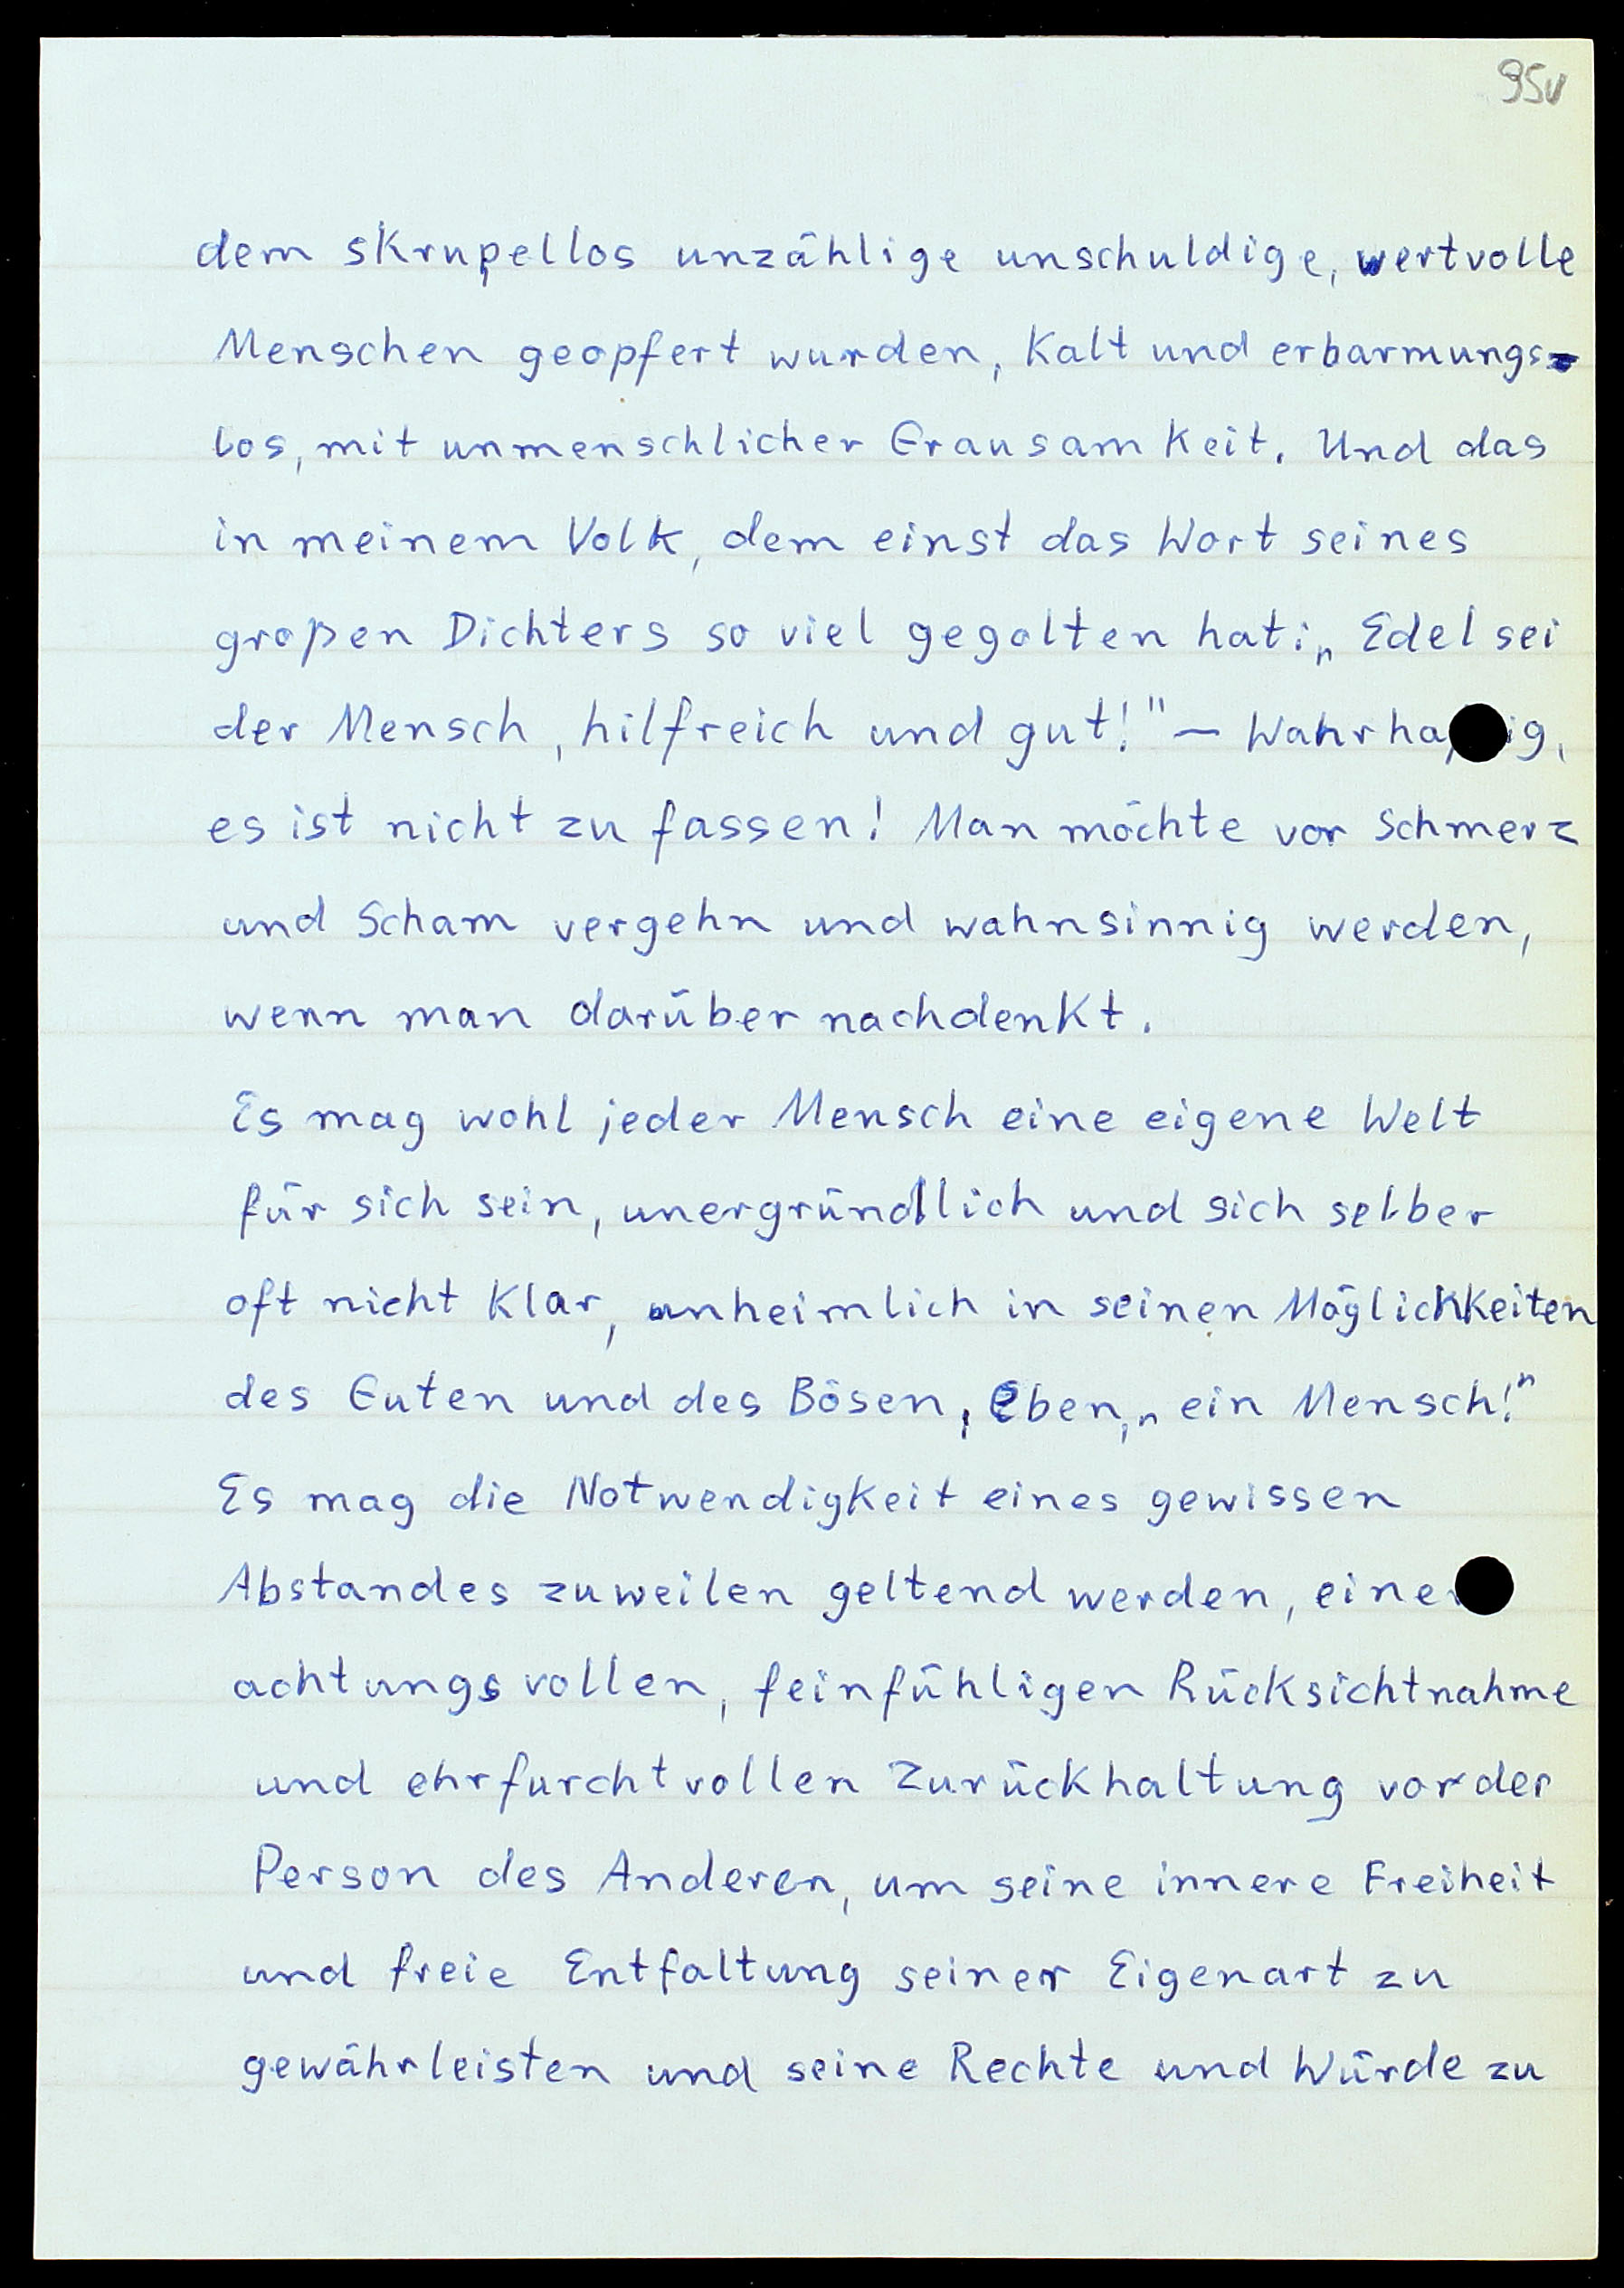 95v
dem skrupellos unzählige unschuldige, wertvolle
Menschen geopfert wurden, kalt und erbarmungs=
los, mit unmenschlicher Grausamkeit. Und das
in meinem Volk, dem einst das Wort seines
großen Dichters so viel gegolten hat: „Edel sei
der Mensch, hilfreich und gut!" –
es ist nicht zu fassen! Man möchte vor Schmerz
und Scham vergehn und wahnsinnig werden,
wenn man darüber nachdenkt.
Es mag wohl jeder Mensch eine eigene Welt
für sich sein, unergründlich und sich selber
oft nicht klar, unheimlich in seinen Möglichkeiten
des Guten und des Bösen, eben, „ein Mensch!"
Es mag die Notwendigkeit eines gewissen
Abstandes zuweilen geltend werden, einer
achtungsvollen, feinfühligen Rücksichtnahme
und ehrfurchtvollen Zurückhaltung vor der
Person des Anderen, um seine innere Freiheit
und freie Entfaltung seiner Eigenart zu
gewährleisten und seine Rechte und Würde zu